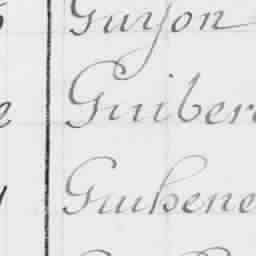 Guyon
Guiber
Guihene